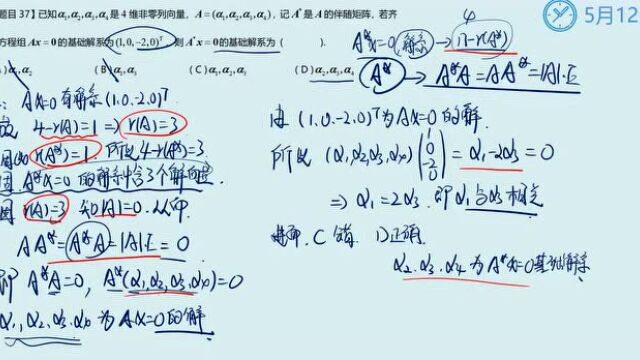 题目 37】已知α₁,α₂,α₃,α₄是 4 维非零列向量，A=(α₁,α₂,α₃,α₄)，记 A* 是 A 的伴随矩阵，若齐
方程组 Ax=0 的基础解系为 (1,0,-2,0)ᵀ，则 A*x=0 的基础解系为（ ）.
)α₁,α₂ （B）α₁,α₃ （C）α₁,α₂,α₃ （D）α₂,α₃,α₄
Ax=0 有解系 (1.0.-2.0)ᵀ
故 4-r(A)=1 ⇒ r(A)=3
r(A*)=1. 所以 4-r(A*)=3
因 A*x=0 的解系中含3个解向量
因 r(A)=3 知 |A|=0. 从而
AA*=A*A=|A|·E=0
即 A*A=0, A*(α₁,α₂,α₃,α₄)=0
α₁,α₂,α₃,α₄ 为 Ax=0 的解
A*x=0 解系 → n-r(A*)
4
A* → A*A=AA*=|A|·E
由 (1.0.-2.0)ᵀ 为 Ax=0 的解.
所以 (α₁,α₂,α₃,α₄) (1 0 -2 0) = α₁-2α₃=0
⇒ α₁=2α₃. 即 α₁与α₃ 相关
C 错. D正确.
α₂.α₃.α₄ 为 A*x=0基础解系
5月12